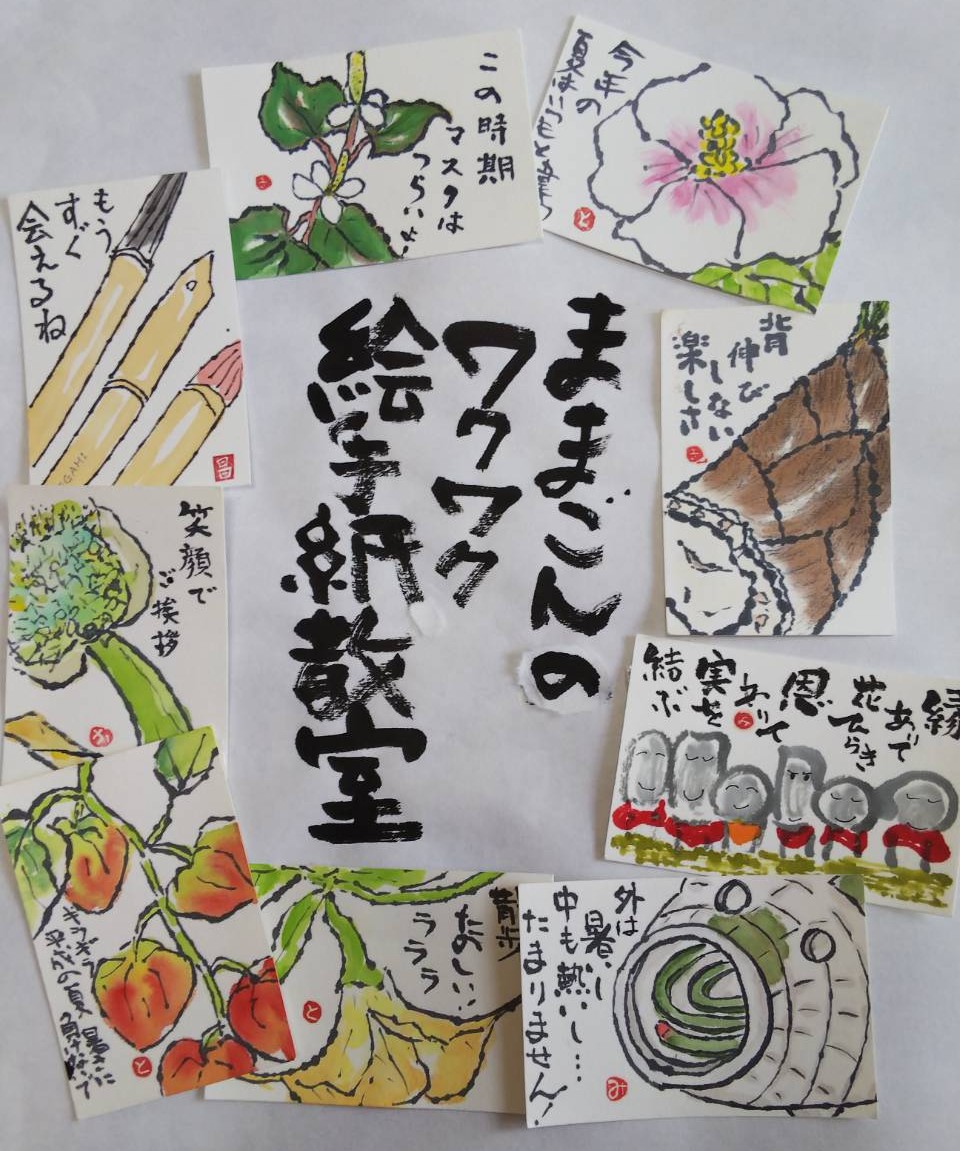 ままごんの
ワクワク
絵手紙教室
この時期
マスクは
つらいよ!
今年の
夏はいつもと違う
と
背
伸び
しない
楽しさ
縁
あって
花ひらき
恩
ありて
実を
結ぶ
外は
暑いし
中も熱いし…
たまりません!
み
散歩
たのしい!
ラララ
と
平成の夏 暑さに
負けないで
と
笑顔で
ご挨拶
もう
すぐ
会えるね
GAMI
昌